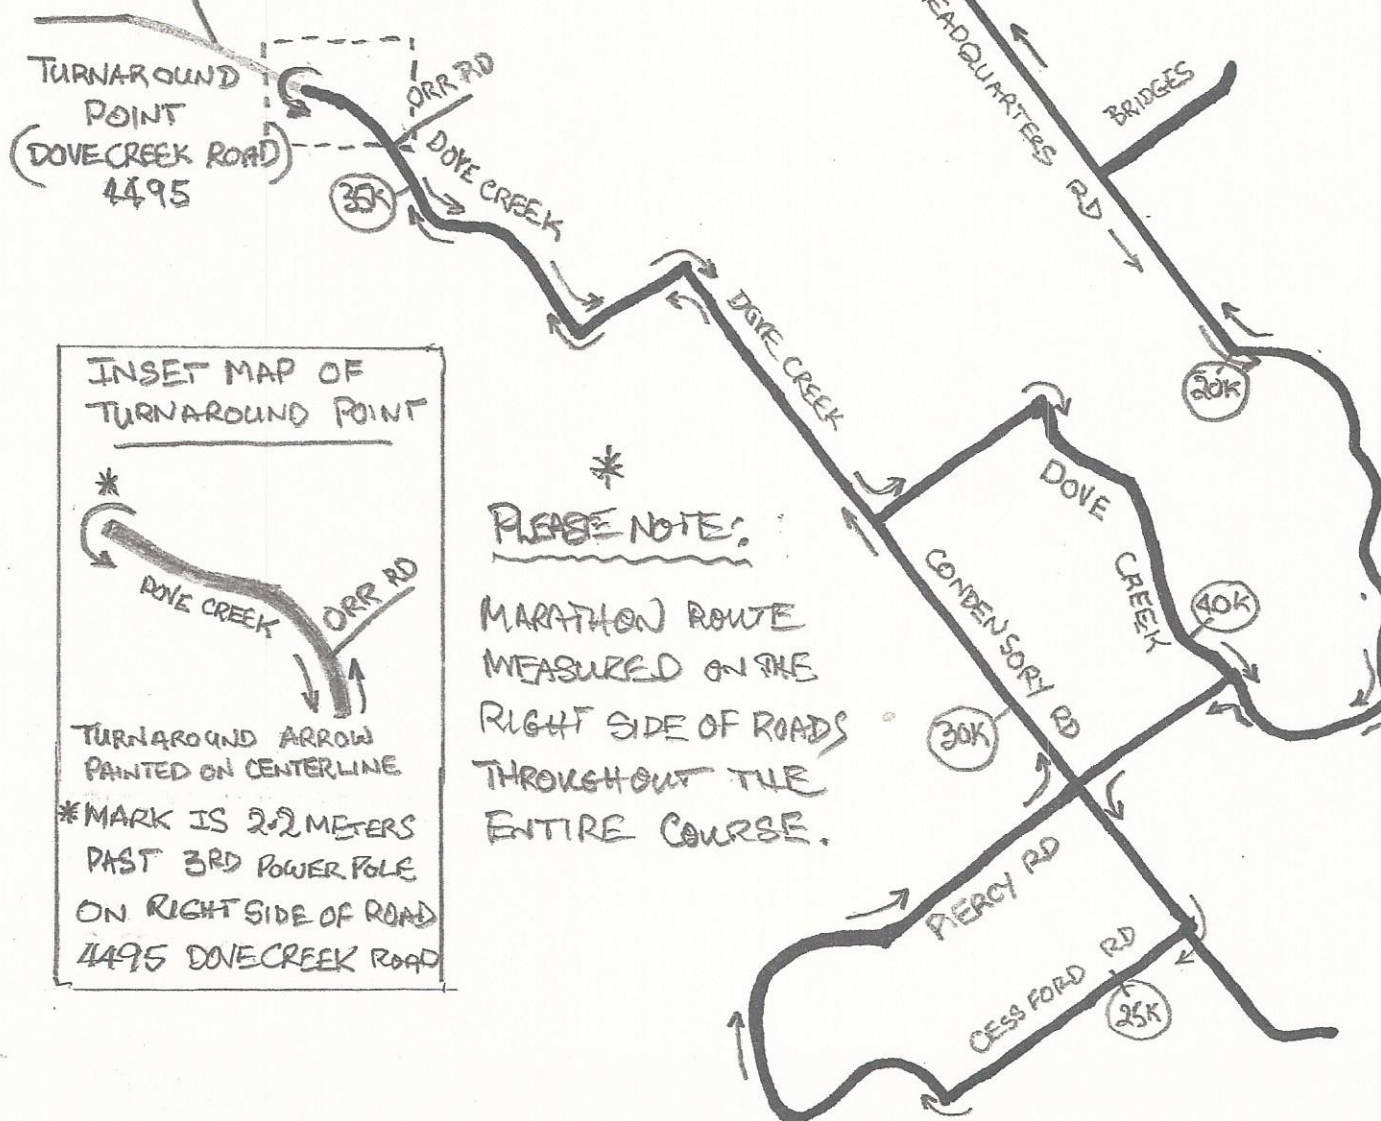 TURNAROUND
POINT
(DOVECREEK ROAD)
4495
ORR RD
DOVE CREEK
35K
EADQUARTERS RD
BRIDGES
20K
DOVE CREEK
DOVE
CREEK
40K
CONDENSORY RD
30K
PIERCY RD
CESSFORD RD
25K
INSET MAP OF
TURNAROUND POINT
*
DOVE CREEK
ORR RD
TURNAROUND ARROW
PAINTED ON CENTERLINE
*MARK IS 2.2 METERS
PAST 3RD POWER POLE
ON RIGHT SIDE OF ROAD
4495 DOVECREEK ROAD
*
PLEASE NOTE:
MARATHON ROUTE
MEASURED ON THE
RIGHT SIDE OF ROADS
THROUGHOUT THE
ENTIRE COURSE.